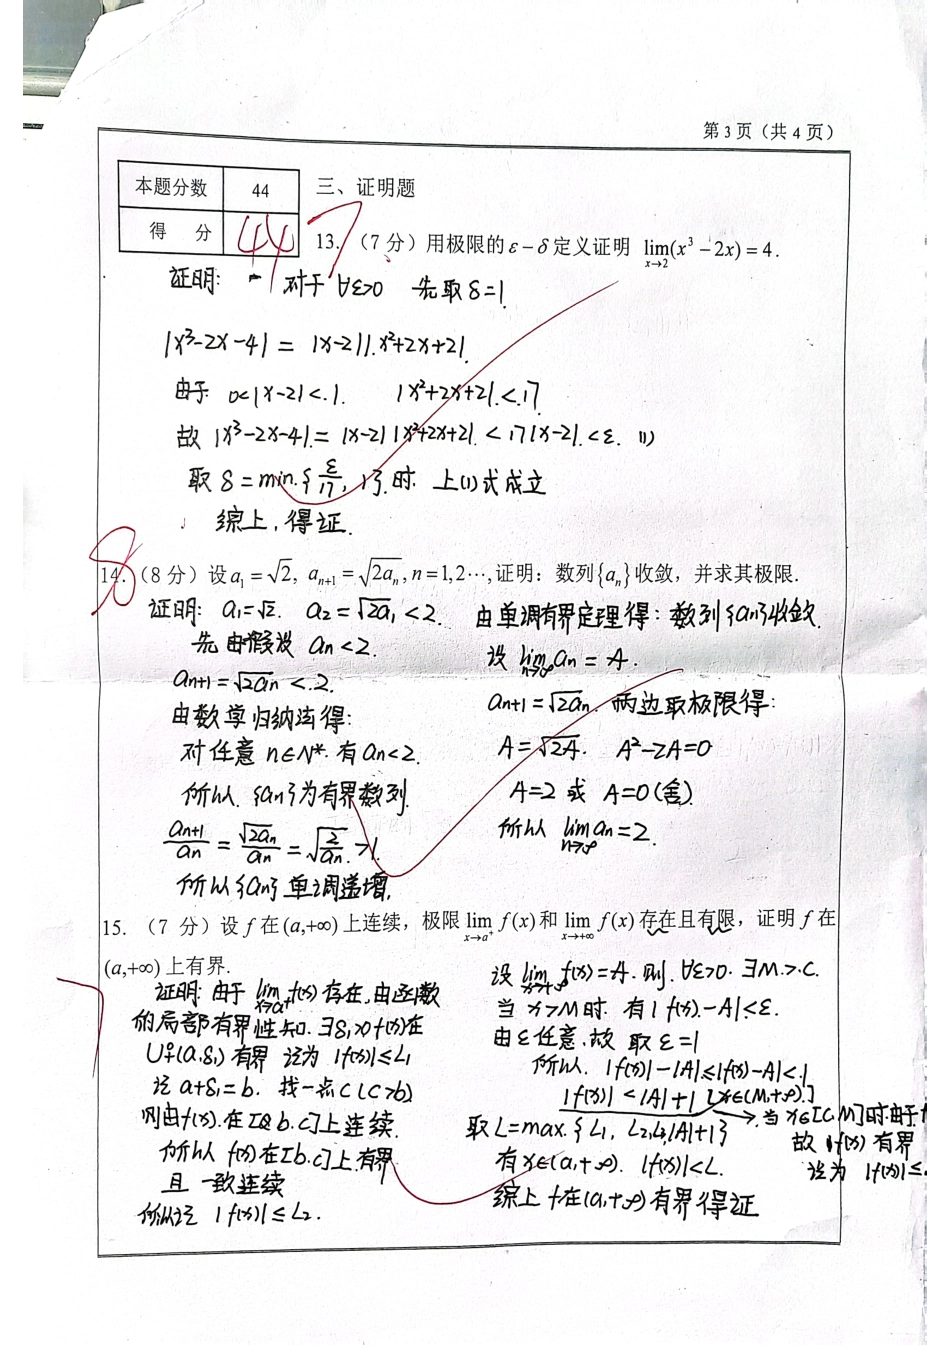 第 3 页（共 4 页）
本题分数 44
得 分 44
三、证明题
7
13. （7 分）用极限的 ε−δ 定义证明 lim_{x→2}(x³−2x)=4.
证明: 对于 ∀ε>0 先取 δ=1.
|x³-2x-4| = |x-2|·|x²+2x+2|.
由于 0<|x-2|<1. |x²+2x+2|<17
故 |x³-2x-4| = |x-2||x²+2x+2| < 17|x-2| < ε. (1)
取 δ=min{ε/17, 1}.时. 上(1)式成立
综上,得证.
8
14. （8 分）设 a₁=√2, aₙ₊₁=√(2aₙ), n=1,2⋯,证明：数列{aₙ}收敛，并求其极限.
证明: a₁=√2. a₂=√(2a₁)<2.
先由假设 aₙ<2.
aₙ₊₁=√(2aₙ)<2.
由数学归纳法得:
对任意 n∈N*. 有 aₙ<2.
所以 {aₙ}为有界数列.
aₙ₊₁/aₙ = √(2aₙ)/aₙ = √(2/aₙ) >1.
所以{aₙ}单调递增,
由单调有界定理得: 数列{aₙ}收敛.
设 lim_{n→∞} aₙ = A.
aₙ₊₁=√(2aₙ). 两边取极限得:
A=√(2A). A²-2A=0
A=2 或 A=0(舍).
所以 lim_{n→∞} aₙ=2.
7
15. （7 分）设 f 在 (a,+∞) 上连续，极限 lim_{x→a⁺} f(x) 和 lim_{x→+∞} f(x) 存在且有限，证明 f 在
(a,+∞) 上有界.
证明: 由于 lim_{x→a⁺} f(x) 存在,由函数
的局部有界性知. ∃δ₁>0 f(x)在
U₊°(a,δ₁) 有界 记为 |f(x)|≤L₁
记 a+δ₁=b. 找一点 c (c>b)
则由f(x).在[b.c]上连续.
所以 f(x)在[b.c]上有界
且 一致连续
所以记 |f(x)|≤L₂.
设 lim_{x→+∞} f(x)=A. 则. ∀ε>0. ∃M>c.
当 x>M时. 有|f(x)-A|<ε.
由ε任意,故 取 ε=1
所以. |f(x)|-|A|≤|f(x)-A|<1
|f(x)|<|A|+1 [x∈(M,+∞).]
当 x∈[c,M]时由于f
故 f(x)有界
设为 |f(x)|≤
取 L=max.{L₁, L₂,L₃,|A|+1}
有 x∈(a,+∞). |f(x)|<L.
综上 f在(a,+∞)有界得证